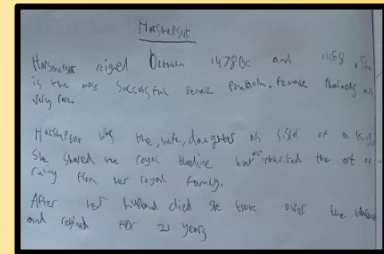 Hatshepsut
Hatshepsut reigned between 1478 BC and 1458. She
is the most successful female Pharaoh. Female Pharaohs are
very rare.
Hatshepsut was the, wife, daughter of a King.
She shared the royal bloodline but inherited the art of
ruling from her royal family.
After her husband died she took over the
and reigned for 21 years